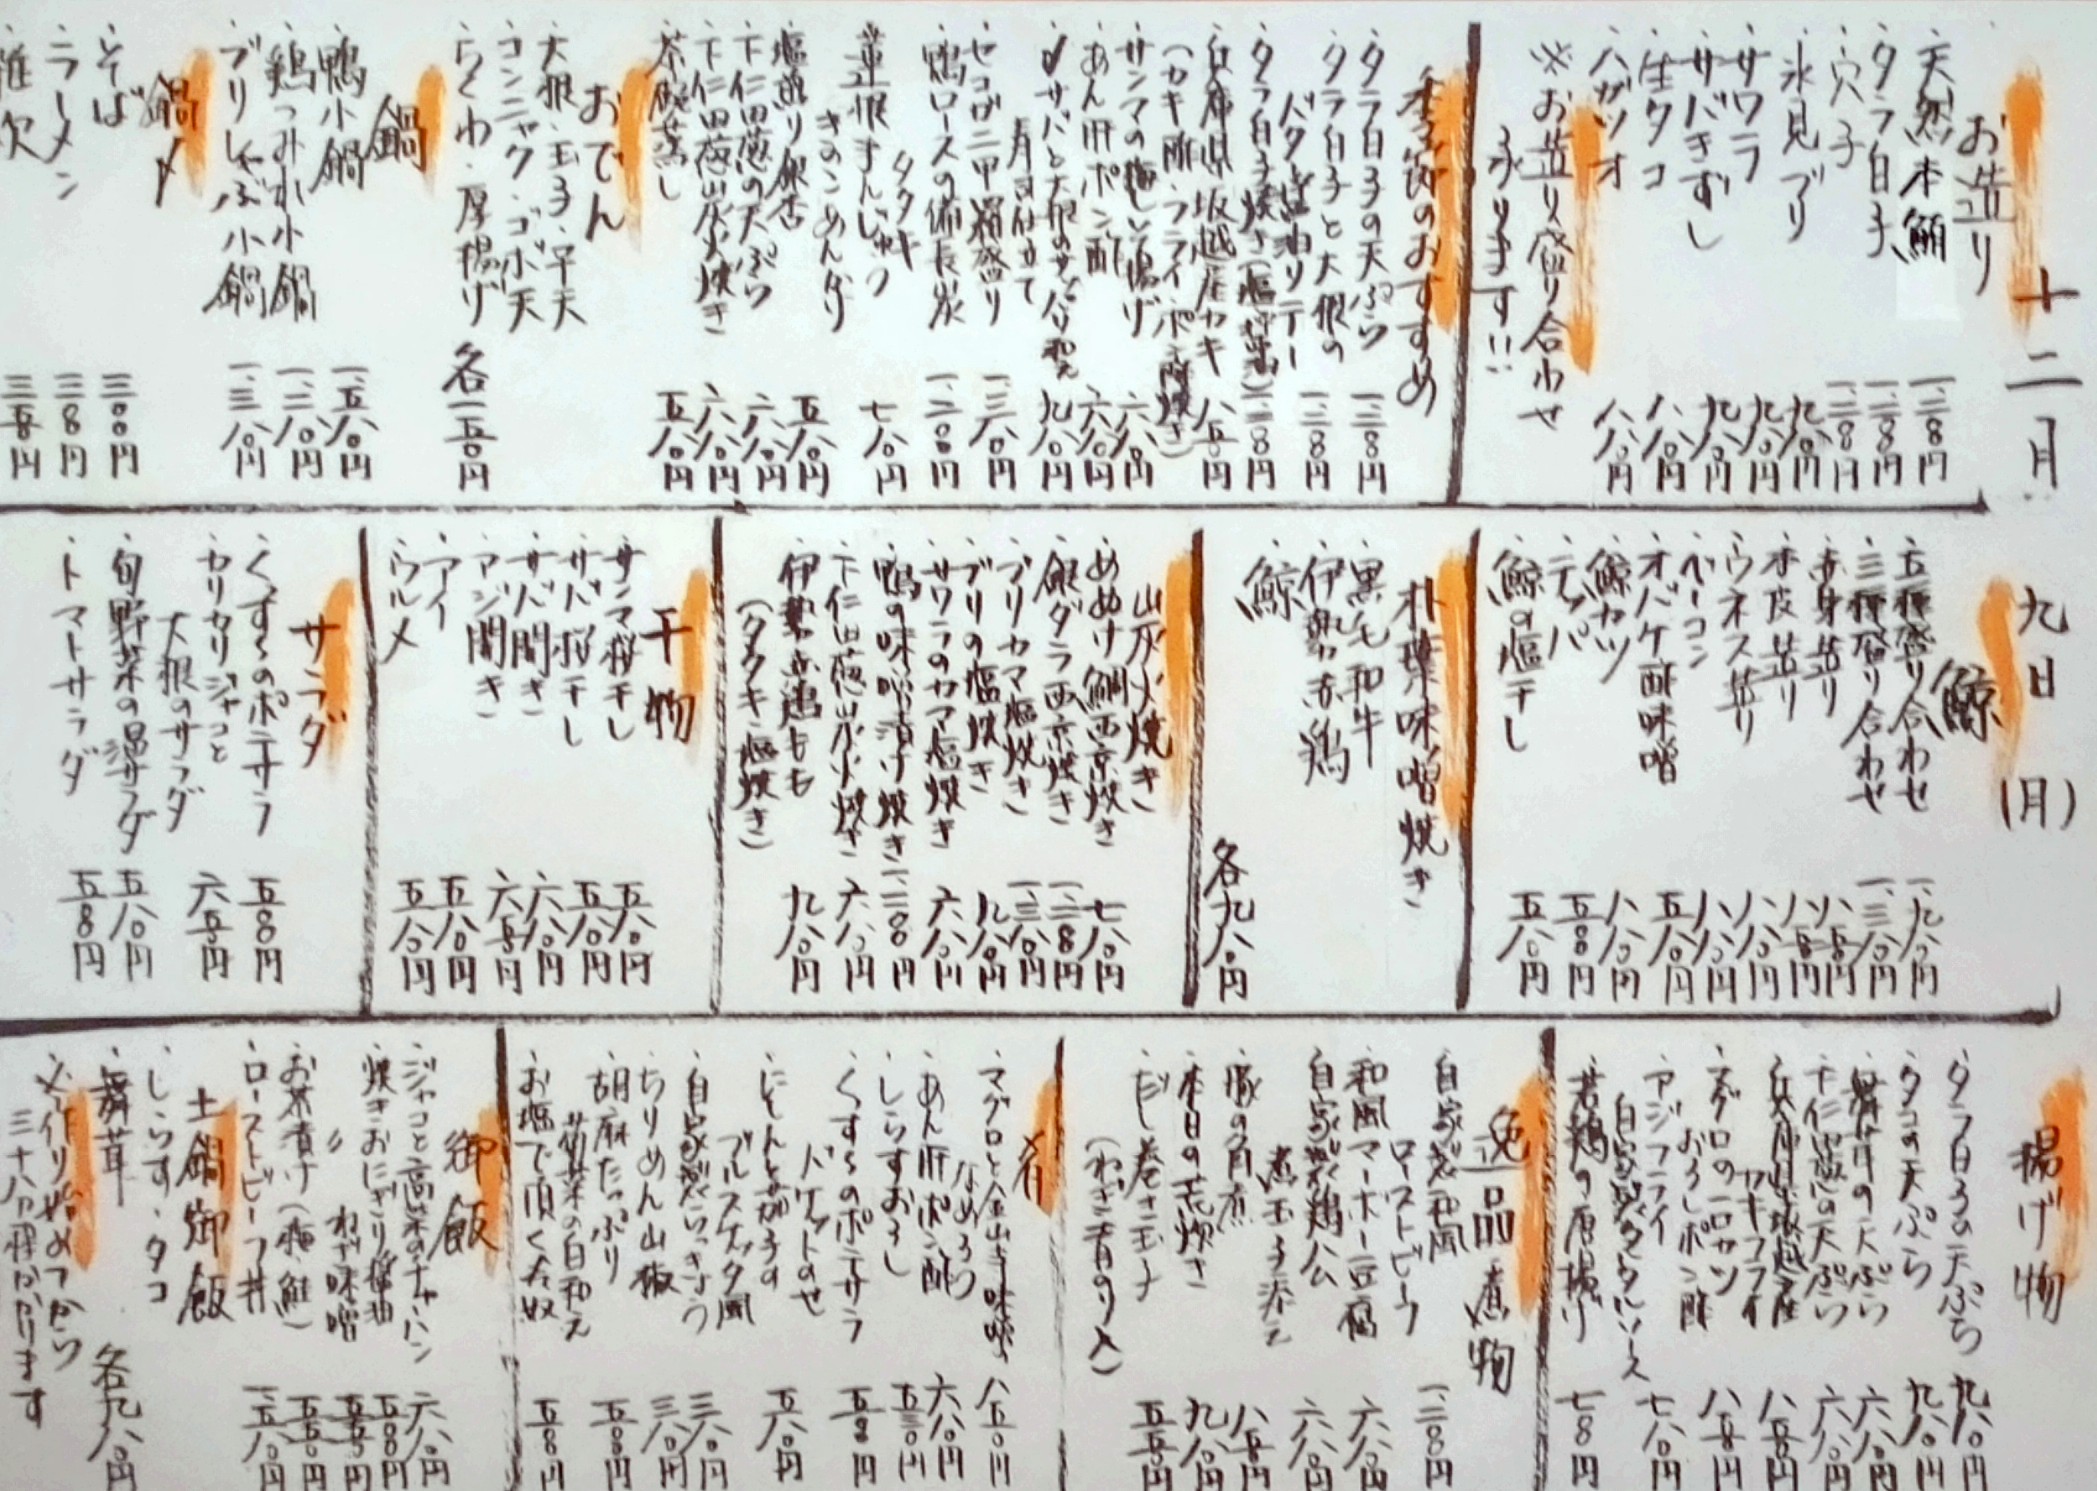 十二月
九日
(月)
お造り
・天然本鮪 一、二八〇円
・タラ白子 一、二八〇円
・穴子 一、二八〇円
・氷見ブリ 九八〇円
・サワラ 九八〇円
・サバきずし 九八〇円
・生タコ 八八〇円
・ハガツオ 八八〇円
※お造り盛り合わせ
承ります!!
季節のおすすめ
・タラ白子の天ぷら 一、二八〇円
・タラ白子と大根の
バター醤油ソテー 一、二八〇円
・タラ白子焼き
・兵庫県坂越産カキ 八五〇円
(カキ酢・フライ・ポン酢焼き)
・サンマの梅しそ揚げ 六八〇円
・あん肝ポン酢 六八〇円
寿司仕立て
・〆サバと大根の 九八〇円
・セコガニ甲羅盛り
・鴨ロースの備長炭
タタキ
・蓮根まんじゅう
きのこあんかけ 七八〇円
・塩煎り銀杏 五八〇円
・下仁田葱の天ぷら 六八〇円
・下仁田葱炭火焼き 六八〇円
・茶碗蒸し 五八〇円
おでん
・大根・玉子・平天
・コンニャク・ゴボ天
・ちくわ・厚揚げ 各二五〇円
鍋
・鴨小鍋 一、五八〇円
・鶏つみれ小鍋 一、三八〇円
・ブリしゃぶ小鍋 一、三八〇円
鍋〆
・そば 三〇〇円
・ラーメン 三八〇円
・雑炊 三五〇円
鯨
・五種盛り合わせ 一、九八〇円
・三種盛り合わせ 一、三八〇円
・赤身造り 八五〇円
・本皮造り 八五〇円
・ウネス造り 八八〇円
・ベーコン 八八〇円
・オバケ酢味噌 五八〇円
・鯨カツ 八八〇円
・コロッパ 五八〇円
・鯨の塩干し 五八〇円
朴葉味噌焼き
・黒毛和牛
・伊勢赤鶏
・鯨
各九八〇円
炭火焼き
・めぬけ鯛西京焼き 七八〇円
・銀ダラ西京焼き 一、二八〇円
・ブリカマ塩焼き 一、三八〇円
・ブリの塩焼き 九八〇円
・サワラのカマ塩焼き 六八〇円
・鴨の味噌漬け焼き 一、二八〇円
・下仁田葱炭火焼き 六八〇円
・伊勢赤鶏もも 九八〇円
(タタキ・塩焼き)
干物
・サンマ桜干し 五八〇円
・サバ桜干し 五八〇円
・サバ開き 六八〇円
・アジ開き 六五〇円
・アイ 五八〇円
・ウルメ 五八〇円
サラダ
・くずきのポテサラ 五五〇円
・カリカリジャコと
大根のサラダ 六五〇円
・旬野菜の温サラダ 五八〇円
・トマトサラダ 五五〇円
揚げ物
・タラ白子の天ぷら 九八〇円
・タコの天ぷら 九八〇円
・舞茸の天ぷら 六八〇円
・下仁田葱の天ぷら 六八〇円
・兵庫県坂越産
カキフライ 八五〇円
・マグロの一口カツ
おろしポン酢 八五〇円
・アジフライ
自家製タルタルソース 七八〇円
・若鶏の唐揚げ 七八〇円
逸品・煮物
・自家製和風
ローストビーフ 一、二八〇円
・和風マーボー豆腐 六八〇円
・自家製鶏ハム
煮玉子添え 六八〇円
・豚の角煮 八五〇円
・本日の荒炊き 九八〇円
・だし巻き玉子 五五〇円
(ねぎ・青のり入)
肴
・マグロと金山寺味噌
なめろう 八五〇円
・あん肝ポン酢 六八〇円
・しらすおろし 五三〇円
・くずきのポテサラ
バゲットのせ 五五〇円
・にしんと茄子の
ブルスケッタ風 五八〇円
・自家製らっきょう 三八〇円
・ちりめん山椒 三八〇円
・胡麻たっぷり
菊菜の白和え 五五〇円
・お塩で頂く冷奴 五五〇円
御飯
・ジャコと高菜のチャーハン 六八〇円
・焼きおにぎり醤油 五〇〇円
・〃 ねぎ味噌 五五〇円
・お茶漬け(梅・鮭) 五五〇円
・ローストビーフ丼 一、五八〇円
土鍋御飯
・しらす・タコ
・舞茸 各九八〇円
※作り始めてから
三十八分程かかります